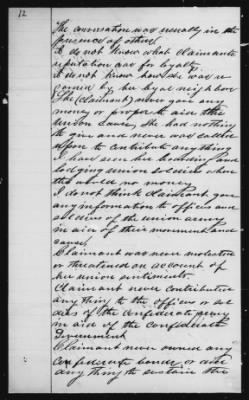 12
The conversation was usually in the
presence of others.
I do not know what Claimants
reputation was for loyalty
I do not know how she was re
garded by her loyal neighbors
She (claimant) never gave any
money or property aid the
Union cause. She had nothing
to give and never was called
upon to contribute anything
I have seen her boarding and
lodging union soldiers when
they had no money
I do not think claimant gave
any information to officers and
soldiers of the union army
in aid of their movements and
cause.
Claimant was never molested
or threatened on account of
her union sentiments.
Claimant never contributed
any thing to the officers or sol
diers of the confederate army
in aid of the confederate
Government
Claimant never owned any
confederate bonds, or did
any thing to sustain the